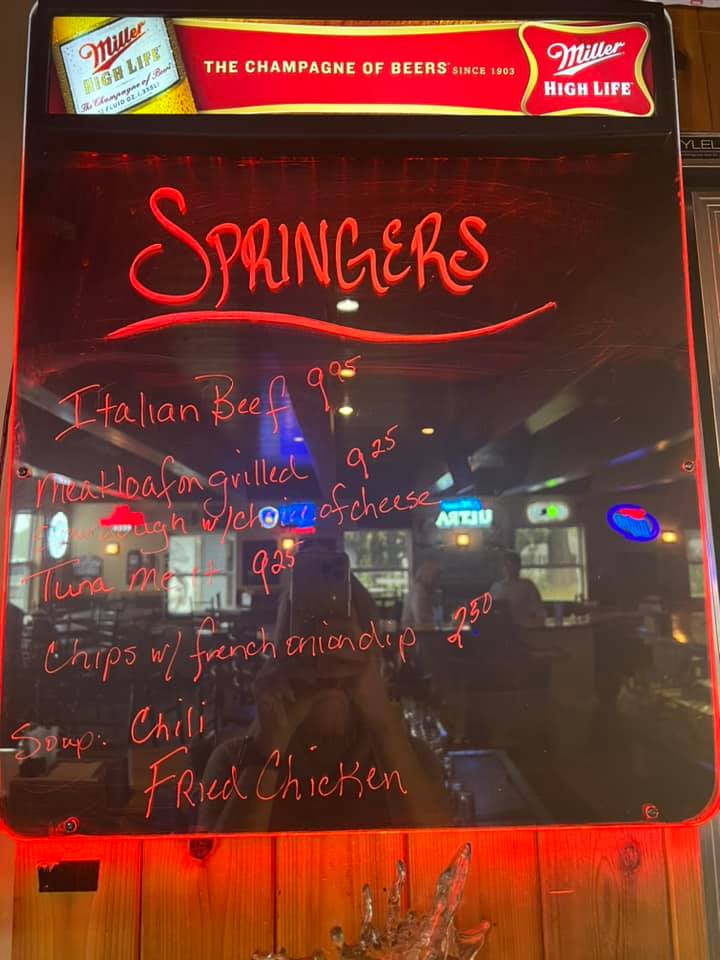 Miller
HIGH LIFE
The Champagne of Beers
THE CHAMPAGNE OF BEERS SINCE 1903
Miller
HIGH LIFE
YLEL
SPRINGERS
Italian Beef 9.95
meatloaf on grilled 9.25
Sourdough w/choice of cheese
ULTRA
Tuna melt 9.25
Chips w/ french onion dip 2.50
Soup: Chili
FRied Chicken